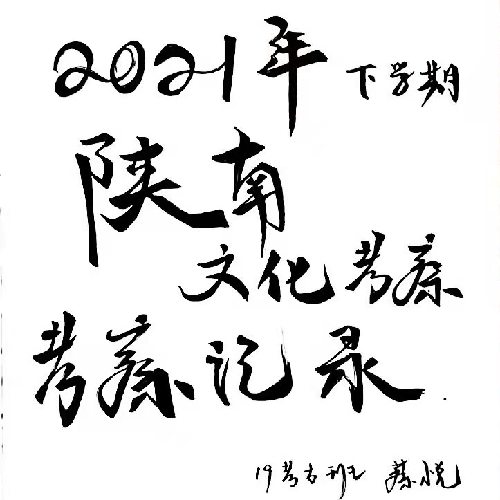 2021年 下学期
陕南
文化考察
考察记录
19考古班 蔡悦